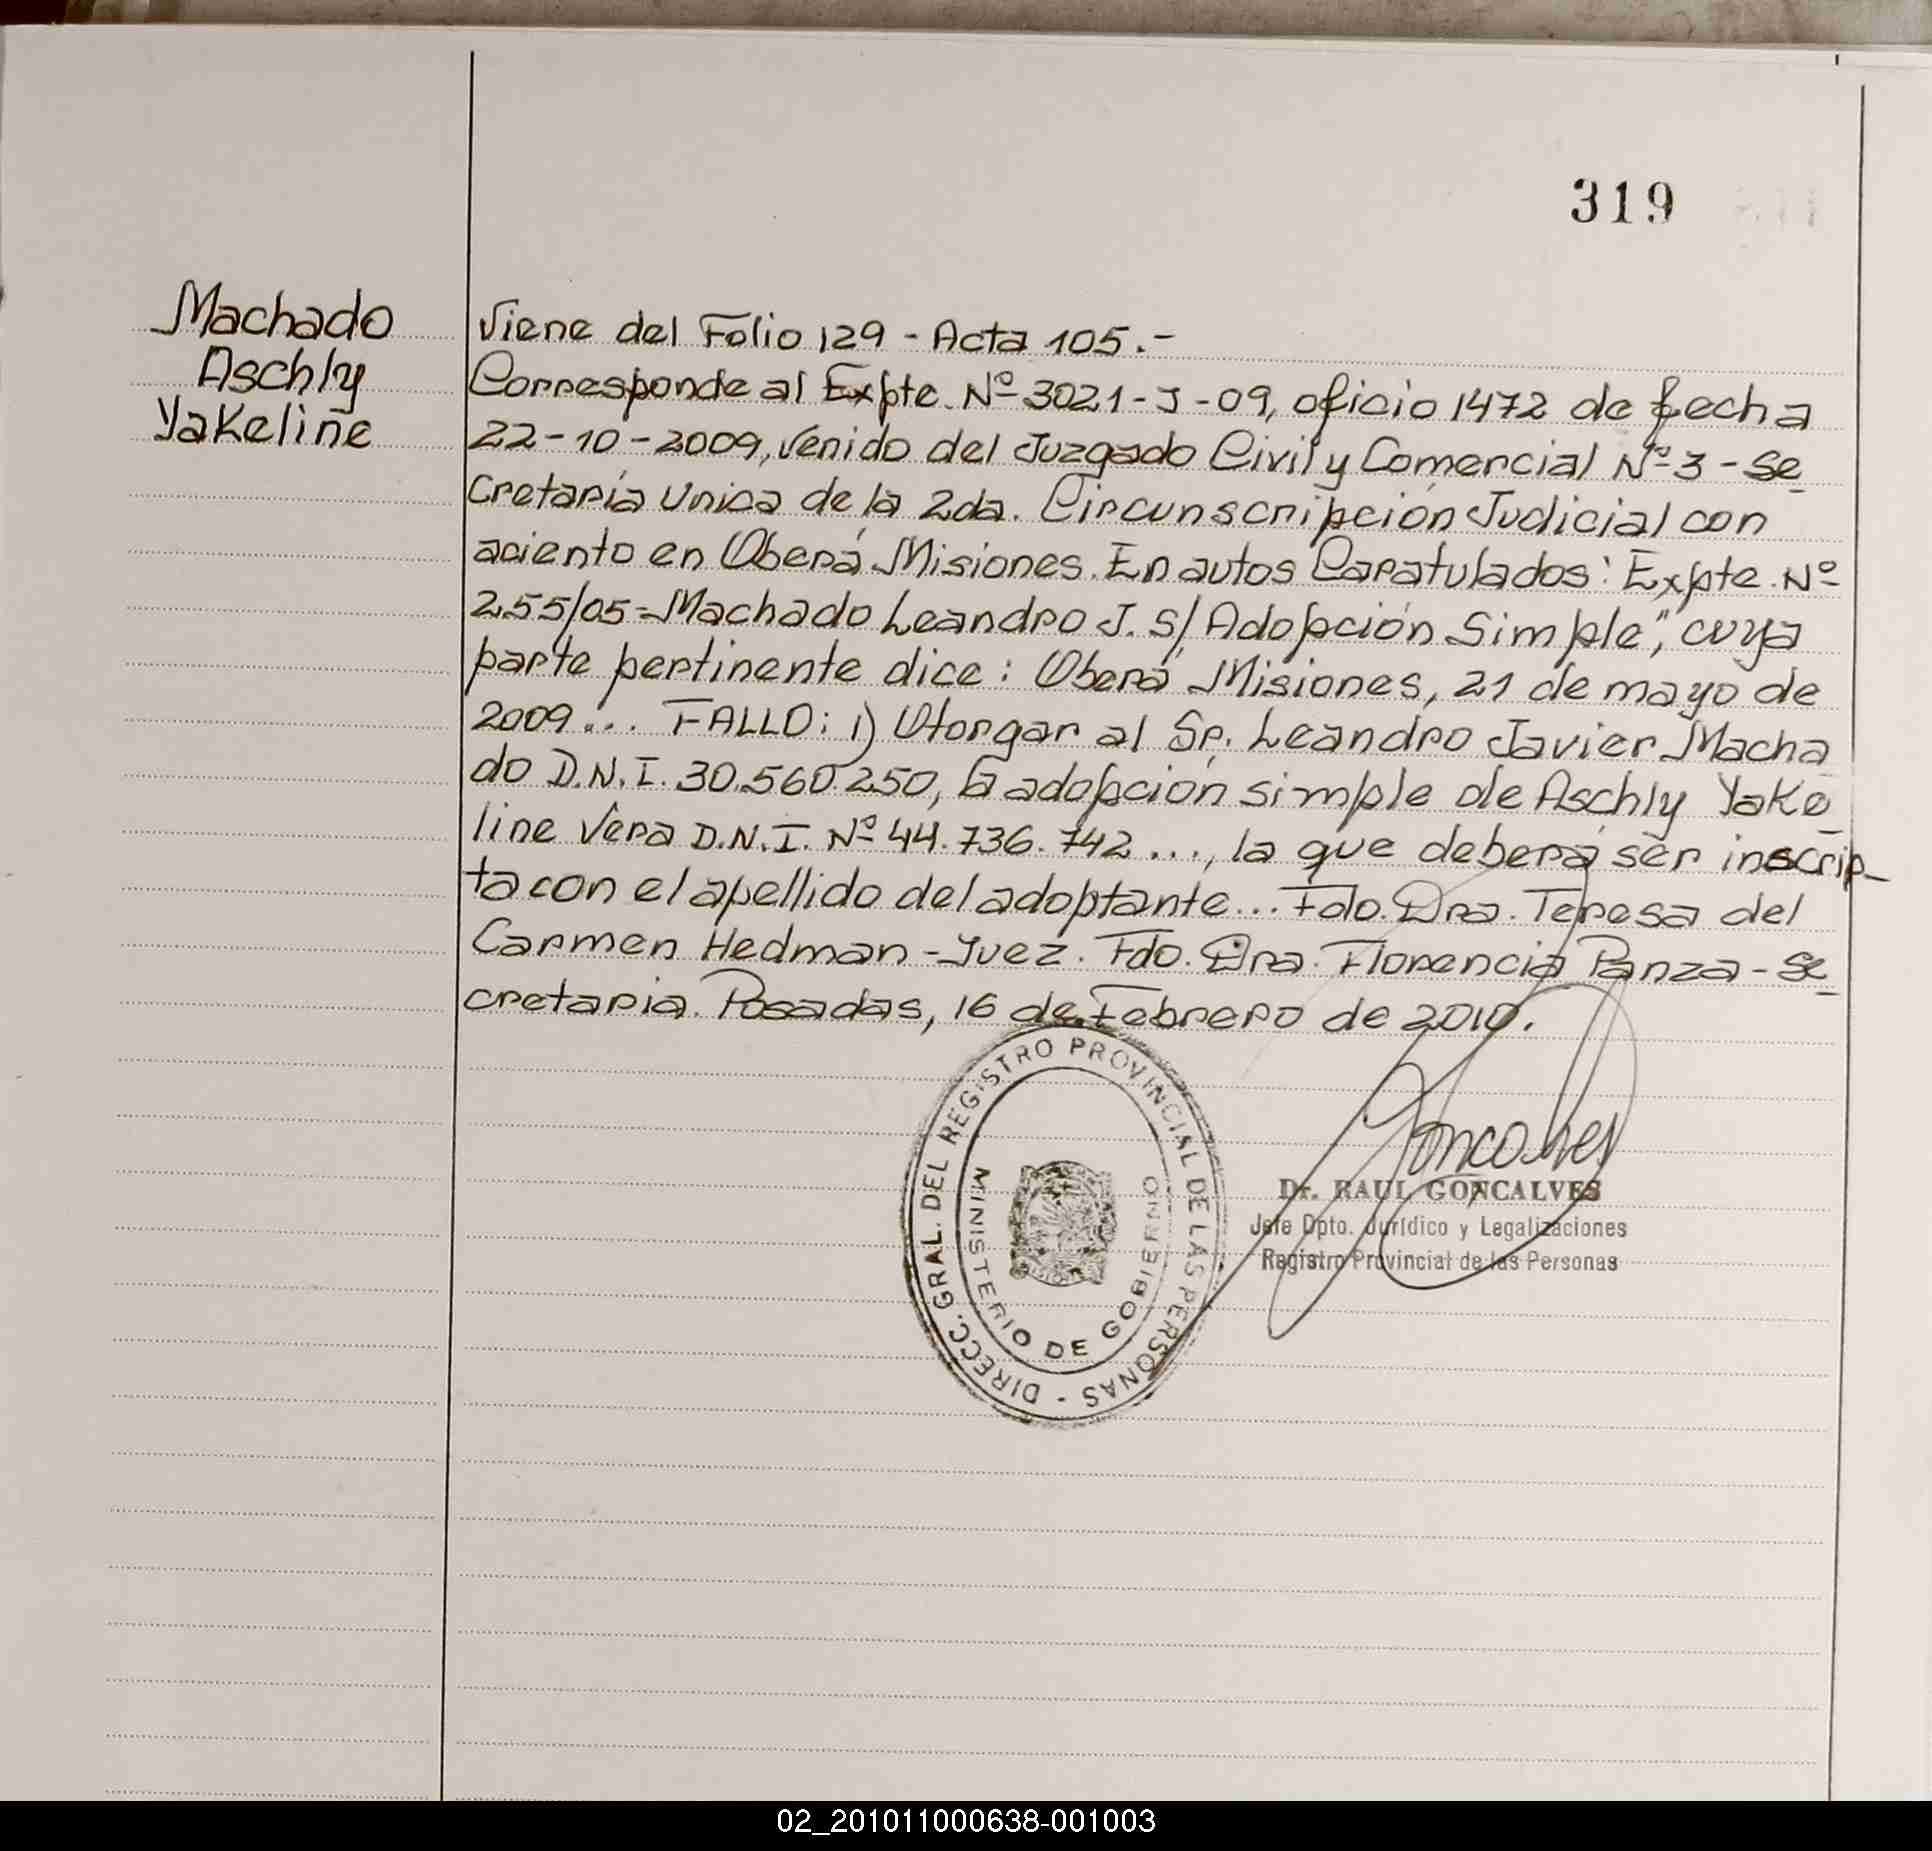 319
Machado
Aschly
Yakeline
Viene del Folio 129 - Acta 105.-
Corresponde al Expte. Nº 3021-J-09, oficio 1472 de fecha
22-10-2009, venido del Juzgado Civil y Comercial Nº 3 - Se
cretaría Unica de la 2da. Circunscripción Judicial con
aciento en Oberá Misiones. En autos Caratulados: Expte. Nº
255/05-Machado Leandro J. S/ Adopción Simple", cuya
parte pertinente dice: Oberá Misiones, 21 de mayo de
2009... FALLO: 1) Otorgar al Sr. Leandro Javier Macha
do D.N.I. 30.560.250, la adopción simple de Aschly Yake
line Vera D.N.I. Nº 44.736.742..., la que deberá ser inscrip
ta con el apellido del adoptante... Fdo. Dra. Teresa del
Carmen Hedman - Juez. Fdo. Dra. Florencia Panza - Se
cretaria. Posadas, 16 de Febrero de 2010.
DIRECC. GRAL. DEL REGISTRO PROVINCIAL DE LAS PERSONAS -
MINISTERIO DE GOBIERNO
Goncalves
Dr. RAUL GONCALVES
Jefe Dpto. Jurídico y Legalizaciones
Registro Provincial de las Personas
02_201011000638-001003